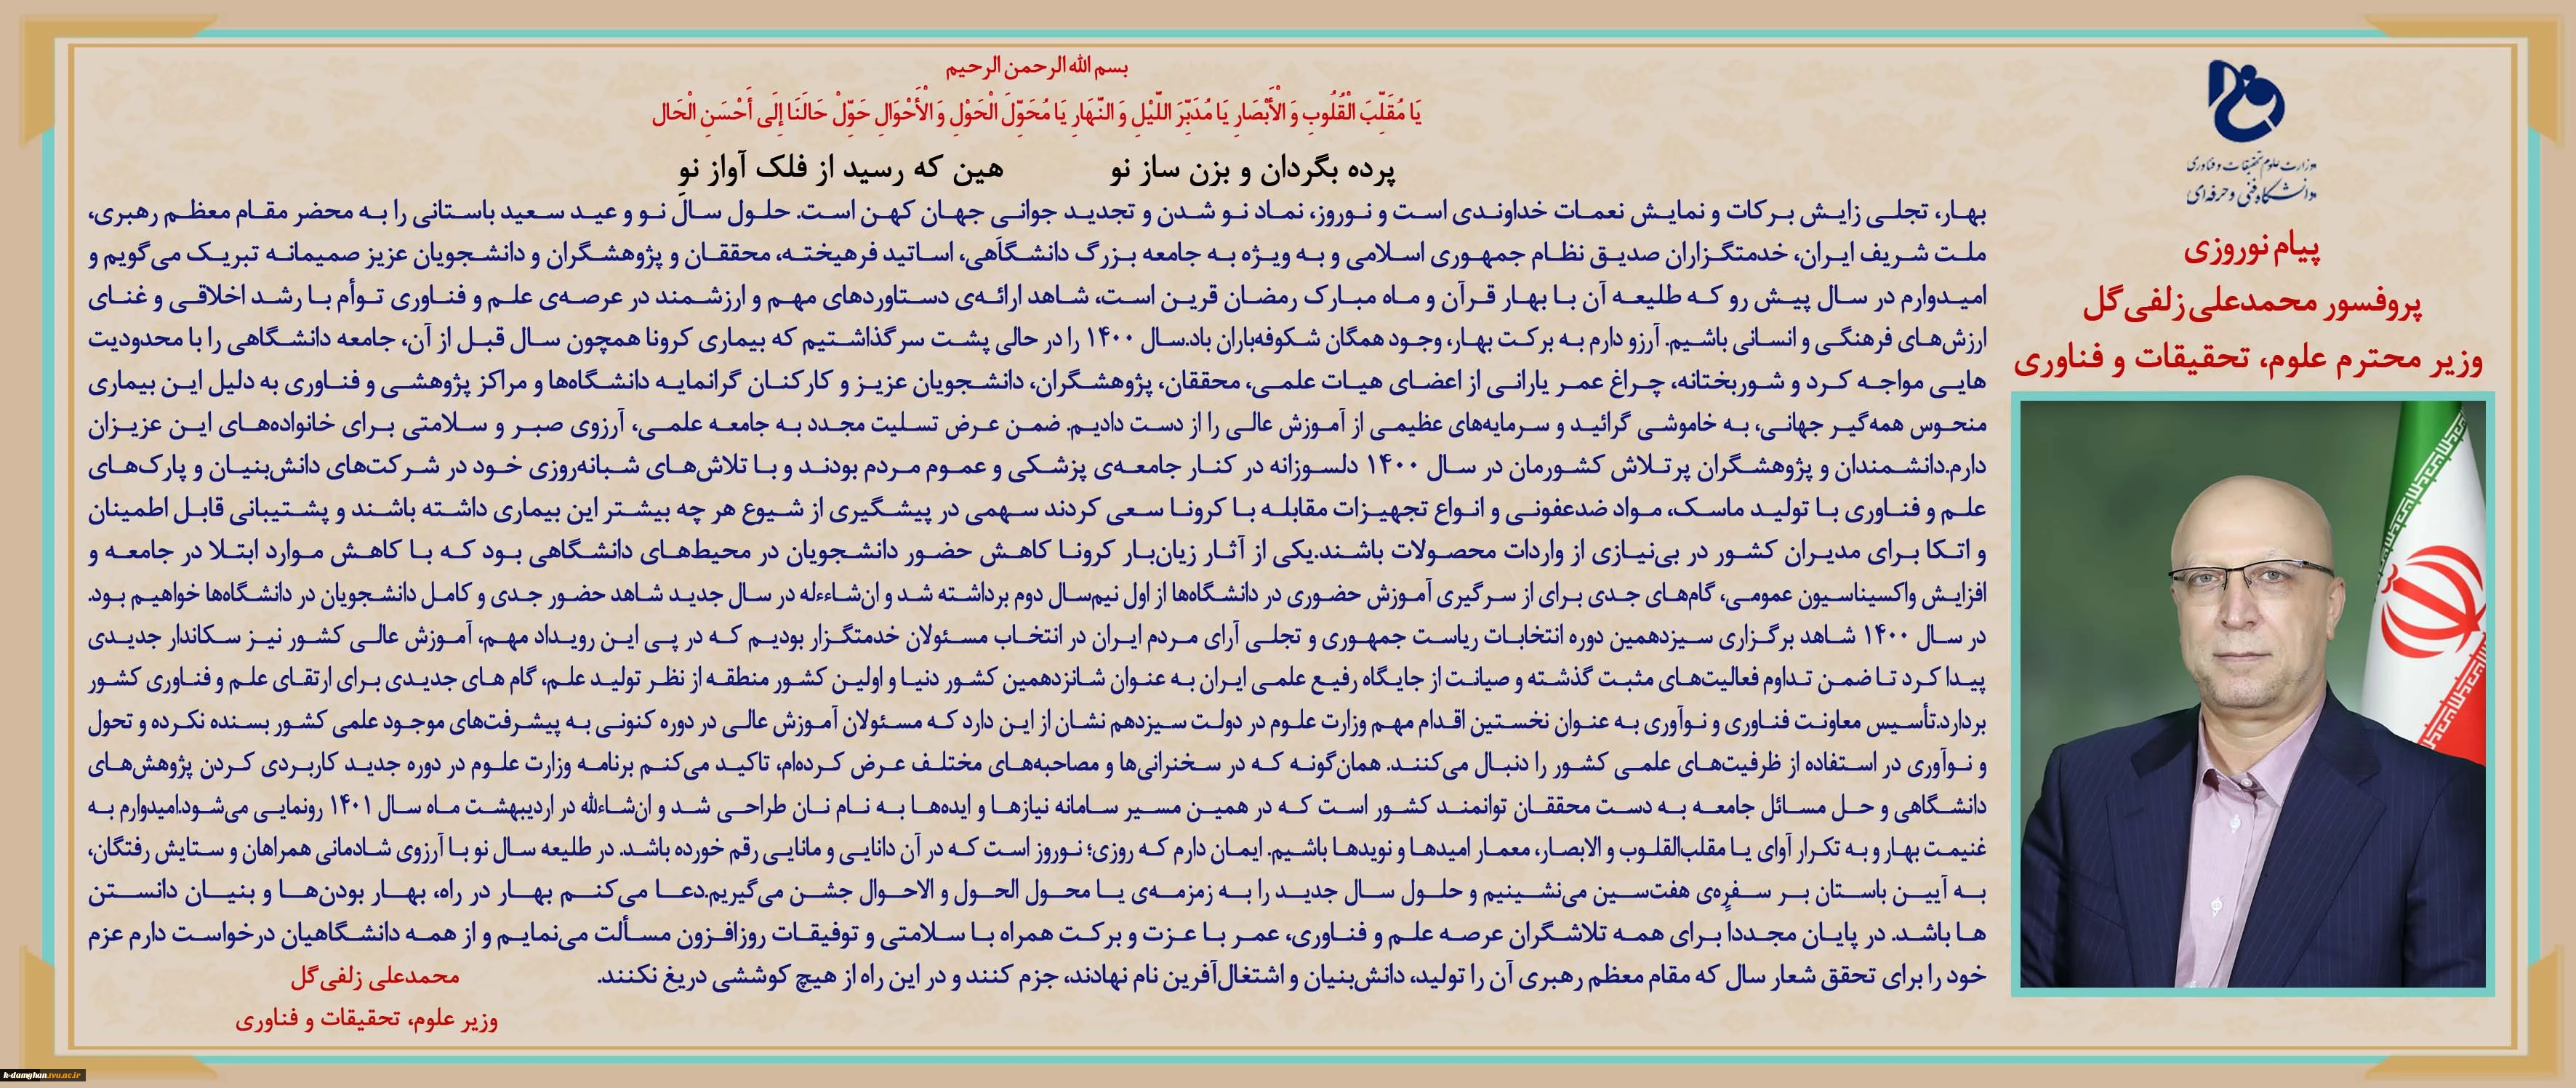 وزارت علوم تحقیقات و فناوری
دانشگاه فنی و حرفه‌ای
پیام نوروزی
پروفسور محمدعلی زلفی‌گل
وزیر محترم علوم، تحقیقات و فناوری
بسم الله الرحمن الرحیم
يَا مُقَلِّبَ الْقُلُوبِ وَ الْأَبْصَارِ يَا مُدَبِّرَ اللَّيْلِ وَ النَّهَارِ يَا مُحَوِّلَ الْحَوْلِ وَ الْأَحْوَالِ حَوِّلْ حَالَنَا إِلَى أَحْسَنِ الْحَال
پرده بگردان و بزن ساز نو هین که رسید از فلک آواز نو
بهار، تجلی زایش برکات و نمایش نعمات خداوندی است و نوروز، نماد نو شدن و تجدید جوانی جهان کهن است. حلول سال نو و عید سعید باستانی را به محضر مقام معظم رهبری،
ملت شریف ایران، خدمتگزاران صدیق نظام جمهوری اسلامی و به ویژه به جامعه بزرگ دانشگاهی، اساتید فرهیخته، محققان و پژوهشگران و دانشجویان عزیز صمیمانه تبریک می‌گویم و
امیدوارم در سال پیش رو که طلیعه آن با بهار قرآن و ماه مبارک رمضان قرین است، شاهد ارائه‌ی دستاوردهای مهم و ارزشمند در عرصه‌ی علم و فناوری توأم با رشد اخلاقی و غنای
ارزش‌های فرهنگی و انسانی باشیم. آرزو دارم به برکت بهار، وجود همگان شکوفه‌باران باد.سال ۱۴۰۰ را در حالی پشت سر گذاشتیم که بیماری کرونا همچون سال قبل از آن، جامعه دانشگاهی را با محدودیت
هایی مواجه کرد و شوربختانه، چراغ عمر یارانی از اعضای هیات علمی، محققان، پژوهشگران، دانشجویان عزیز و کارکنان گرانمایه دانشگاه‌ها و مراکز پژوهشی و فناوری به دلیل این بیماری
منحوس همه‌گیر جهانی، به خاموشی گرائید و سرمایه‌های عظیمی از آموزش عالی را از دست دادیم. ضمن عرض تسلیت مجدد به جامعه علمی، آرزوی صبر و سلامتی برای خانواده‌های این عزیزان
دارم.دانشمندان و پژوهشگران پرتلاش کشورمان در سال ۱۴۰۰ دلسوزانه در کنار جامعه‌ی پزشکی و عموم مردم بودند و با تلاش‌های شبانه‌روزی خود در شرکت‌های دانش‌بنیان و پارک‌های
علم و فناوری با تولید ماسک، مواد ضدعفونی و انواع تجهیزات مقابله با کرونا سعی کردند سهمی در پیشگیری از شیوع هر چه بیشتر این بیماری داشته باشند و پشتیبانی قابل اطمینان
و اتکا برای مدیران کشور در بی‌نیازی از واردات محصولات باشند.یکی از آثار زیان‌بار کرونا کاهش حضور دانشجویان در محیط‌های دانشگاهی بود که با کاهش موارد ابتلا در جامعه و
افزایش واکسیناسیون عمومی، گام‌های جدی برای از سرگیری آموزش حضوری در دانشگاه‌ها از اول نیم‌سال دوم برداشته شد و ان‌شاءءله در سال جدید شاهد حضور جدی و کامل دانشجویان در دانشگاه‌ها خواهیم بود.
در سال ۱۴۰۰ شاهد برگزاری سیزدهمین دوره انتخابات ریاست جمهوری و تجلی آرای مردم ایران در انتخاب مسئولان خدمتگزار بودیم که در پی این رویداد مهم، آموزش عالی کشور نیز سکاندار جدیدی
پیدا کرد تا ضمن تداوم فعالیت‌های مثبت گذشته و صیانت از جایگاه رفیع علمی ایران به عنوان شانزدهمین کشور دنیا و اولین کشور منطقه از نظر تولید علم، گام های جدیدی برای ارتقای علم و فناوری کشور
بردارد.تأسیس معاونت فناوری و نوآوری به عنوان نخستین اقدام مهم وزارت علوم در دولت سیزدهم نشان از این دارد که مسئولان آموزش عالی در دوره کنونی به پیشرفت‌های موجود علمی کشور بسنده نکرده و تحول
و نوآوری در استفاده از ظرفیت‌های علمی کشور را دنبال می‌کنند. همان‌گونه که در سخنرانی‌ها و مصاحبه‌های مختلف عرض کرده‌ام، تاکید می‌کنم برنامه وزارت علوم در دوره جدید کاربردی کردن پژوهش‌های
دانشگاهی و حل مسائل جامعه به دست محققان توانمند کشور است که در همین مسیر سامانه نیازها و ایده‌ها به نام نان طراحی شد و ان‌شاءالله در اردیبهشت ماه سال ۱۴۰۱ رونمایی می‌شود.امیدوارم به
غنیمت بهار و به تکرار آوای یا مقلب‌القلوب و الابصار، معمار امیدها و نویدها باشیم. ایمان دارم که روزی؛ نوروز است که در آن دانایی و مانایی رقم خورده باشد. در طلیعه سال نو با آرزوی شادمانی همراهان و ستایش رفتگان،
به آیین باستان بر سفره‌ی هفت‌سین می‌نشینیم و حلول سال جدید را به زمزمه‌ی یا محول الحول و الاحوال جشن می‌گیریم.دعا می‌کنم بهار در راه، بهار بودن‌ها و بنیان دانستن
ها باشد. در پایان مجددا برای همه تلاشگران عرصه علم و فناوری، عمر با عزت و برکت همراه با سلامتی و توفیقات روزافزون مسألت می‌نمایم و از همه دانشگاهیان درخواست دارم عزم
خود را برای تحقق شعار سال که مقام معظم رهبری آن را تولید، دانش‌بنیان و اشتغال‌آفرین نام نهادند، جزم کنند و در این راه از هیچ کوششی دریغ نکنند.
محمدعلی زلفی‌گل
وزیر علوم، تحقیقات و فناوری
k-damghan.tvu.ac.ir